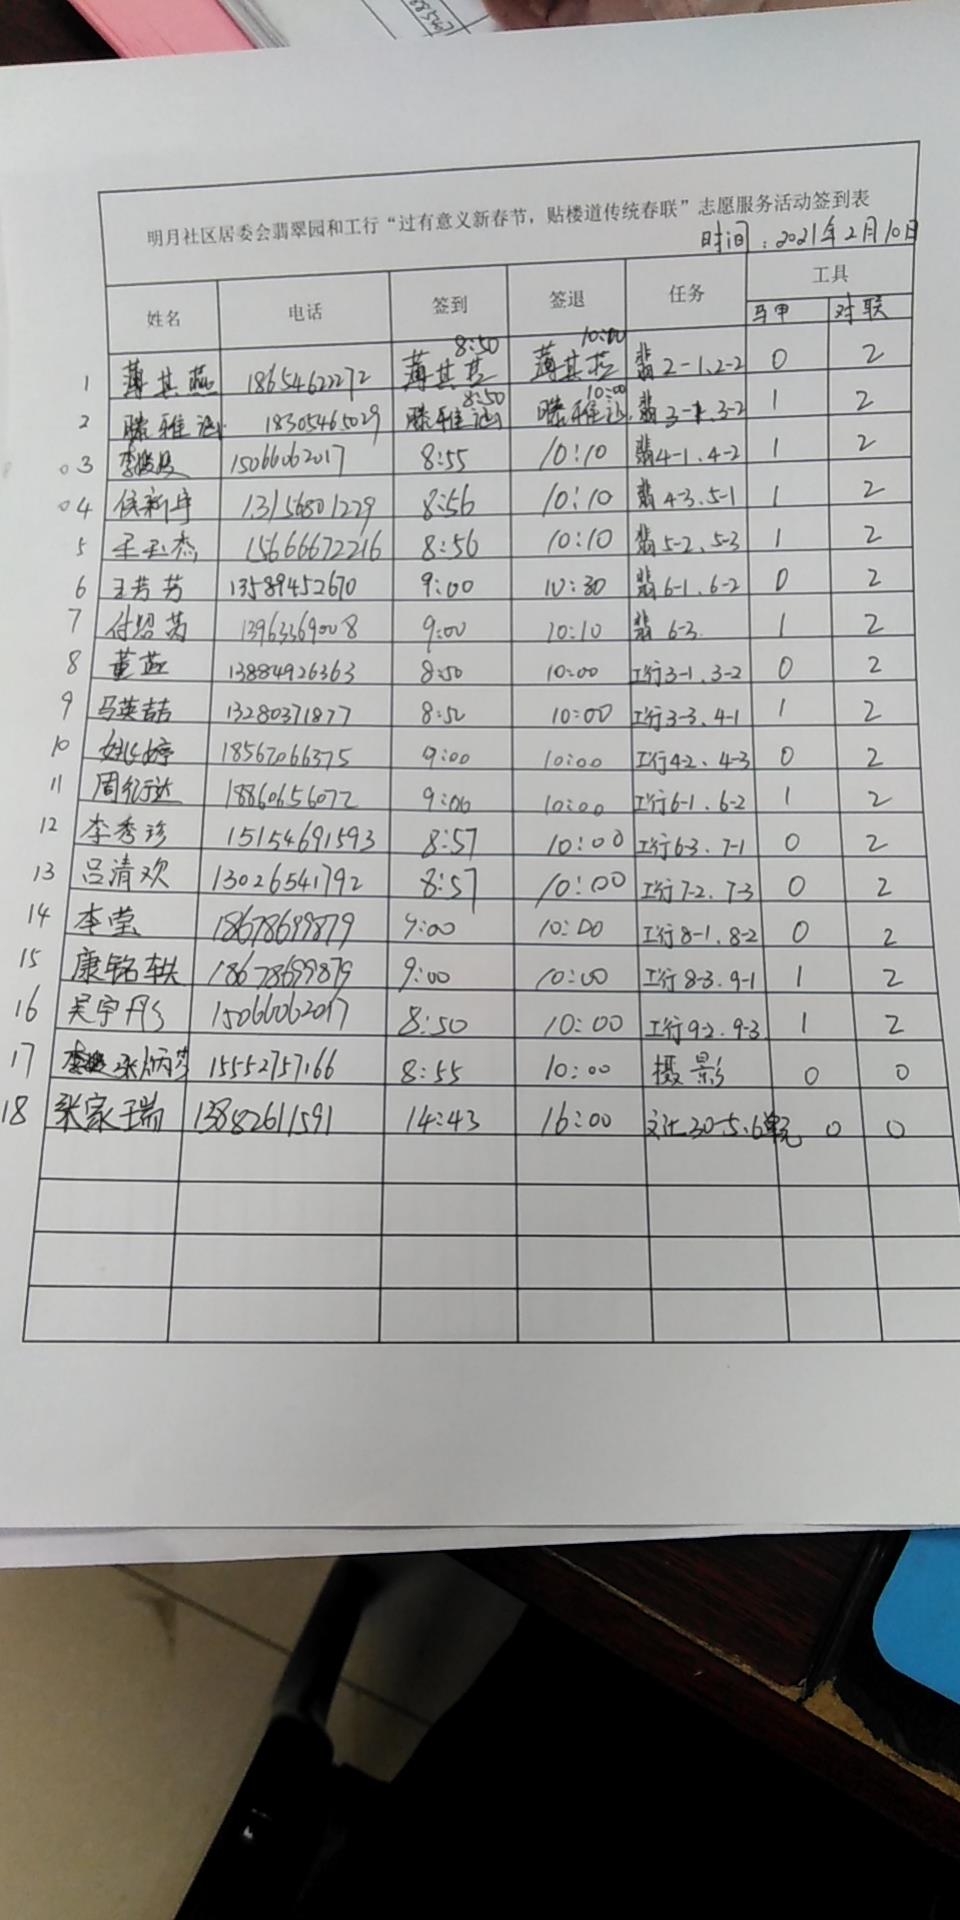 明月社区居委会翡翠园和工行“过有意义新春节，贴楼道传统春联”志愿服务活动签到表
时间：2021年2月10日
姓名 电话 签到 签退 任务 工具
马甲 对联
1 薄其燕 18654622272 薄其燕 8:50 薄其燕 10:00 翡2-1、2-2 0 2
2 滕雅涵 18305465029 滕雅涵 8:50 滕雅涵 10:00 翡3-1、3-2 1 2
03 15066062017 8:55 10:10 翡4-1、4-2 1 2
04 侯新宇 13156801229 8:56 10:10 翡4-3、5-1 1 2
5 王玉杰 15666672216 8:56 10:10 翡5-2、5-3 1 2
6 王芳芳 13589452670 9:00 10:30 翡6-1、6-2 0 2
7 付绍芬 13963369008 9:00 10:10 翡 6-3 1 2
8 董燕 13884926363 8:50 10:00 工行3-1、3-2 0 2
9 马英喆 13280371877 8:50 10:00 工行3-3、4-1 1 2
10 姚婷 18567066375 9:00 10:00 工行4-2、4-3 0 2
11 周行达 18860656072 9:00 10:00 工行6-1、6-2 1 2
12 李秀珍 15154691593 8:57 10:00 工行6-3、7-1 0 2
13 吕清欢 13026541792 8:57 10:00 工行7-2、7-3 0 2
14 李莹 18678699879 9:00 10:00 工行8-1、8-2 0 2
15 康铭轶 18678699879 9:00 10:00 工行8-3、9-1 1 2
16 吴宇彤 15066062017 8:50 10:00 工行9-2、9-3 1 2
17 张炳芬 15552757166 8:55 10:00 摄影 0 0
18 张家瑞 13882611591 14:43 16:00 文汇30-5、6单元 0 0